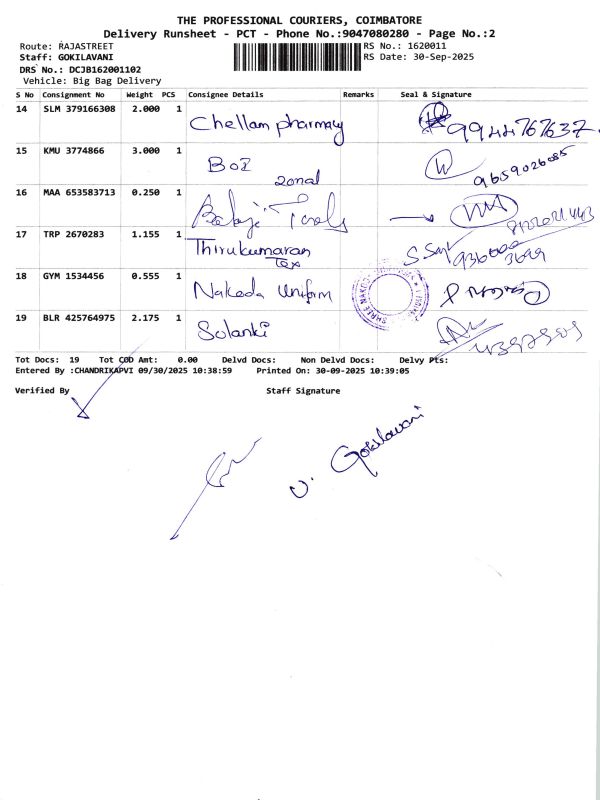 THE PROFESSIONAL COURIERS, COIMBATORE
Delivery Runsheet - PCT - Phone No.:9047080280 - Page No.:2
Route: RAJASTREET
RS No.: 1620011
Staff: GOKILAVANI
RS Date: 30-Sep-2025
DRS No.: DCJB162001102
Vehicle: Big Bag Delivery
S No Consignment No Weight PCS Consignee Details Remarks Seal & Signature
14 SLM 379166308 2.000 1 Chellam pharmacy 9944767637
15 KMU 3774866 3.000 1 BOI zonal 9659026085
16 MAA 653583713 0.250 1 Balaji Tools
17 TRP 2670283 1.155 1 Thirukumaran Tex
18 GYM 1534456 0.555 1 Nakoda Uniform
19 BLR 425764975 2.175 1 Solanki
Tot Docs: 19 Tot COD Amt: 0.00 Delvd Docs: Non Delvd Docs: Delvy Pts:
Entered By :CHANDRIKAPVI 09/30/2025 10:38:59 Printed On: 30-09-2025 10:39:05
Verified By Staff Signature
V. Gokilavani